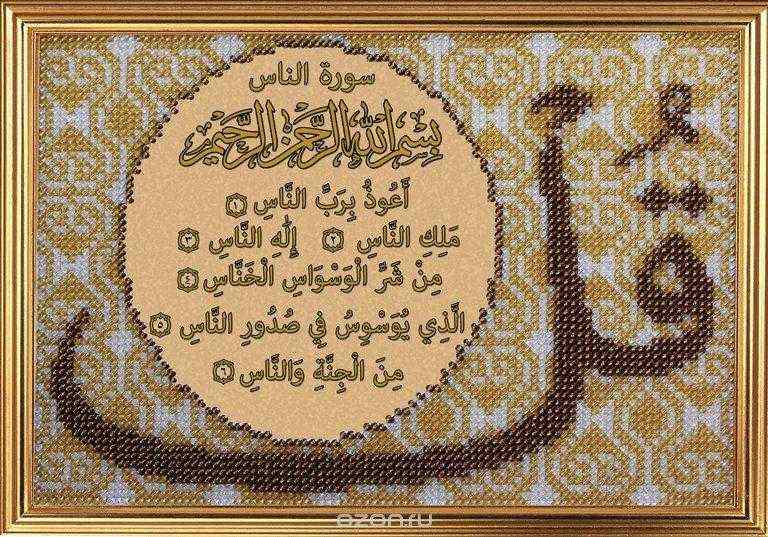 قُل
سورة الناس
بسم الله الرحمن الرحيم
أَعُوذُ بِرَبِّ النَّاسِ ١
مَلِكِ النَّاسِ ٢ إِلَٰهِ النَّاسِ ٣
مِنْ شَرِّ الْوَسْوَاسِ الْخَنَّاسِ ٤
الَّذِي يُوَسْوِسُ فِي صُدُورِ النَّاسِ ٥
مِنَ الْجِنَّةِ وَالنَّاسِ ٦
ozon.ru